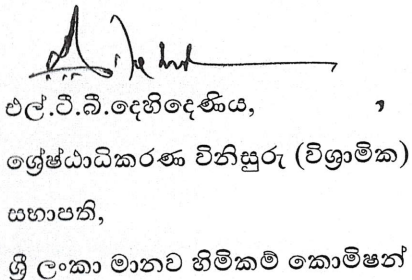 එල්.ටී.බී.දෙහිදෙණිය,
ශ්‍රේෂ්ඨාධිකරණ විනිසුරු (විශ්‍රාමික)
සභාපති,
ශ්‍රී ලංකා මානව හිමිකම් කොමිෂන්